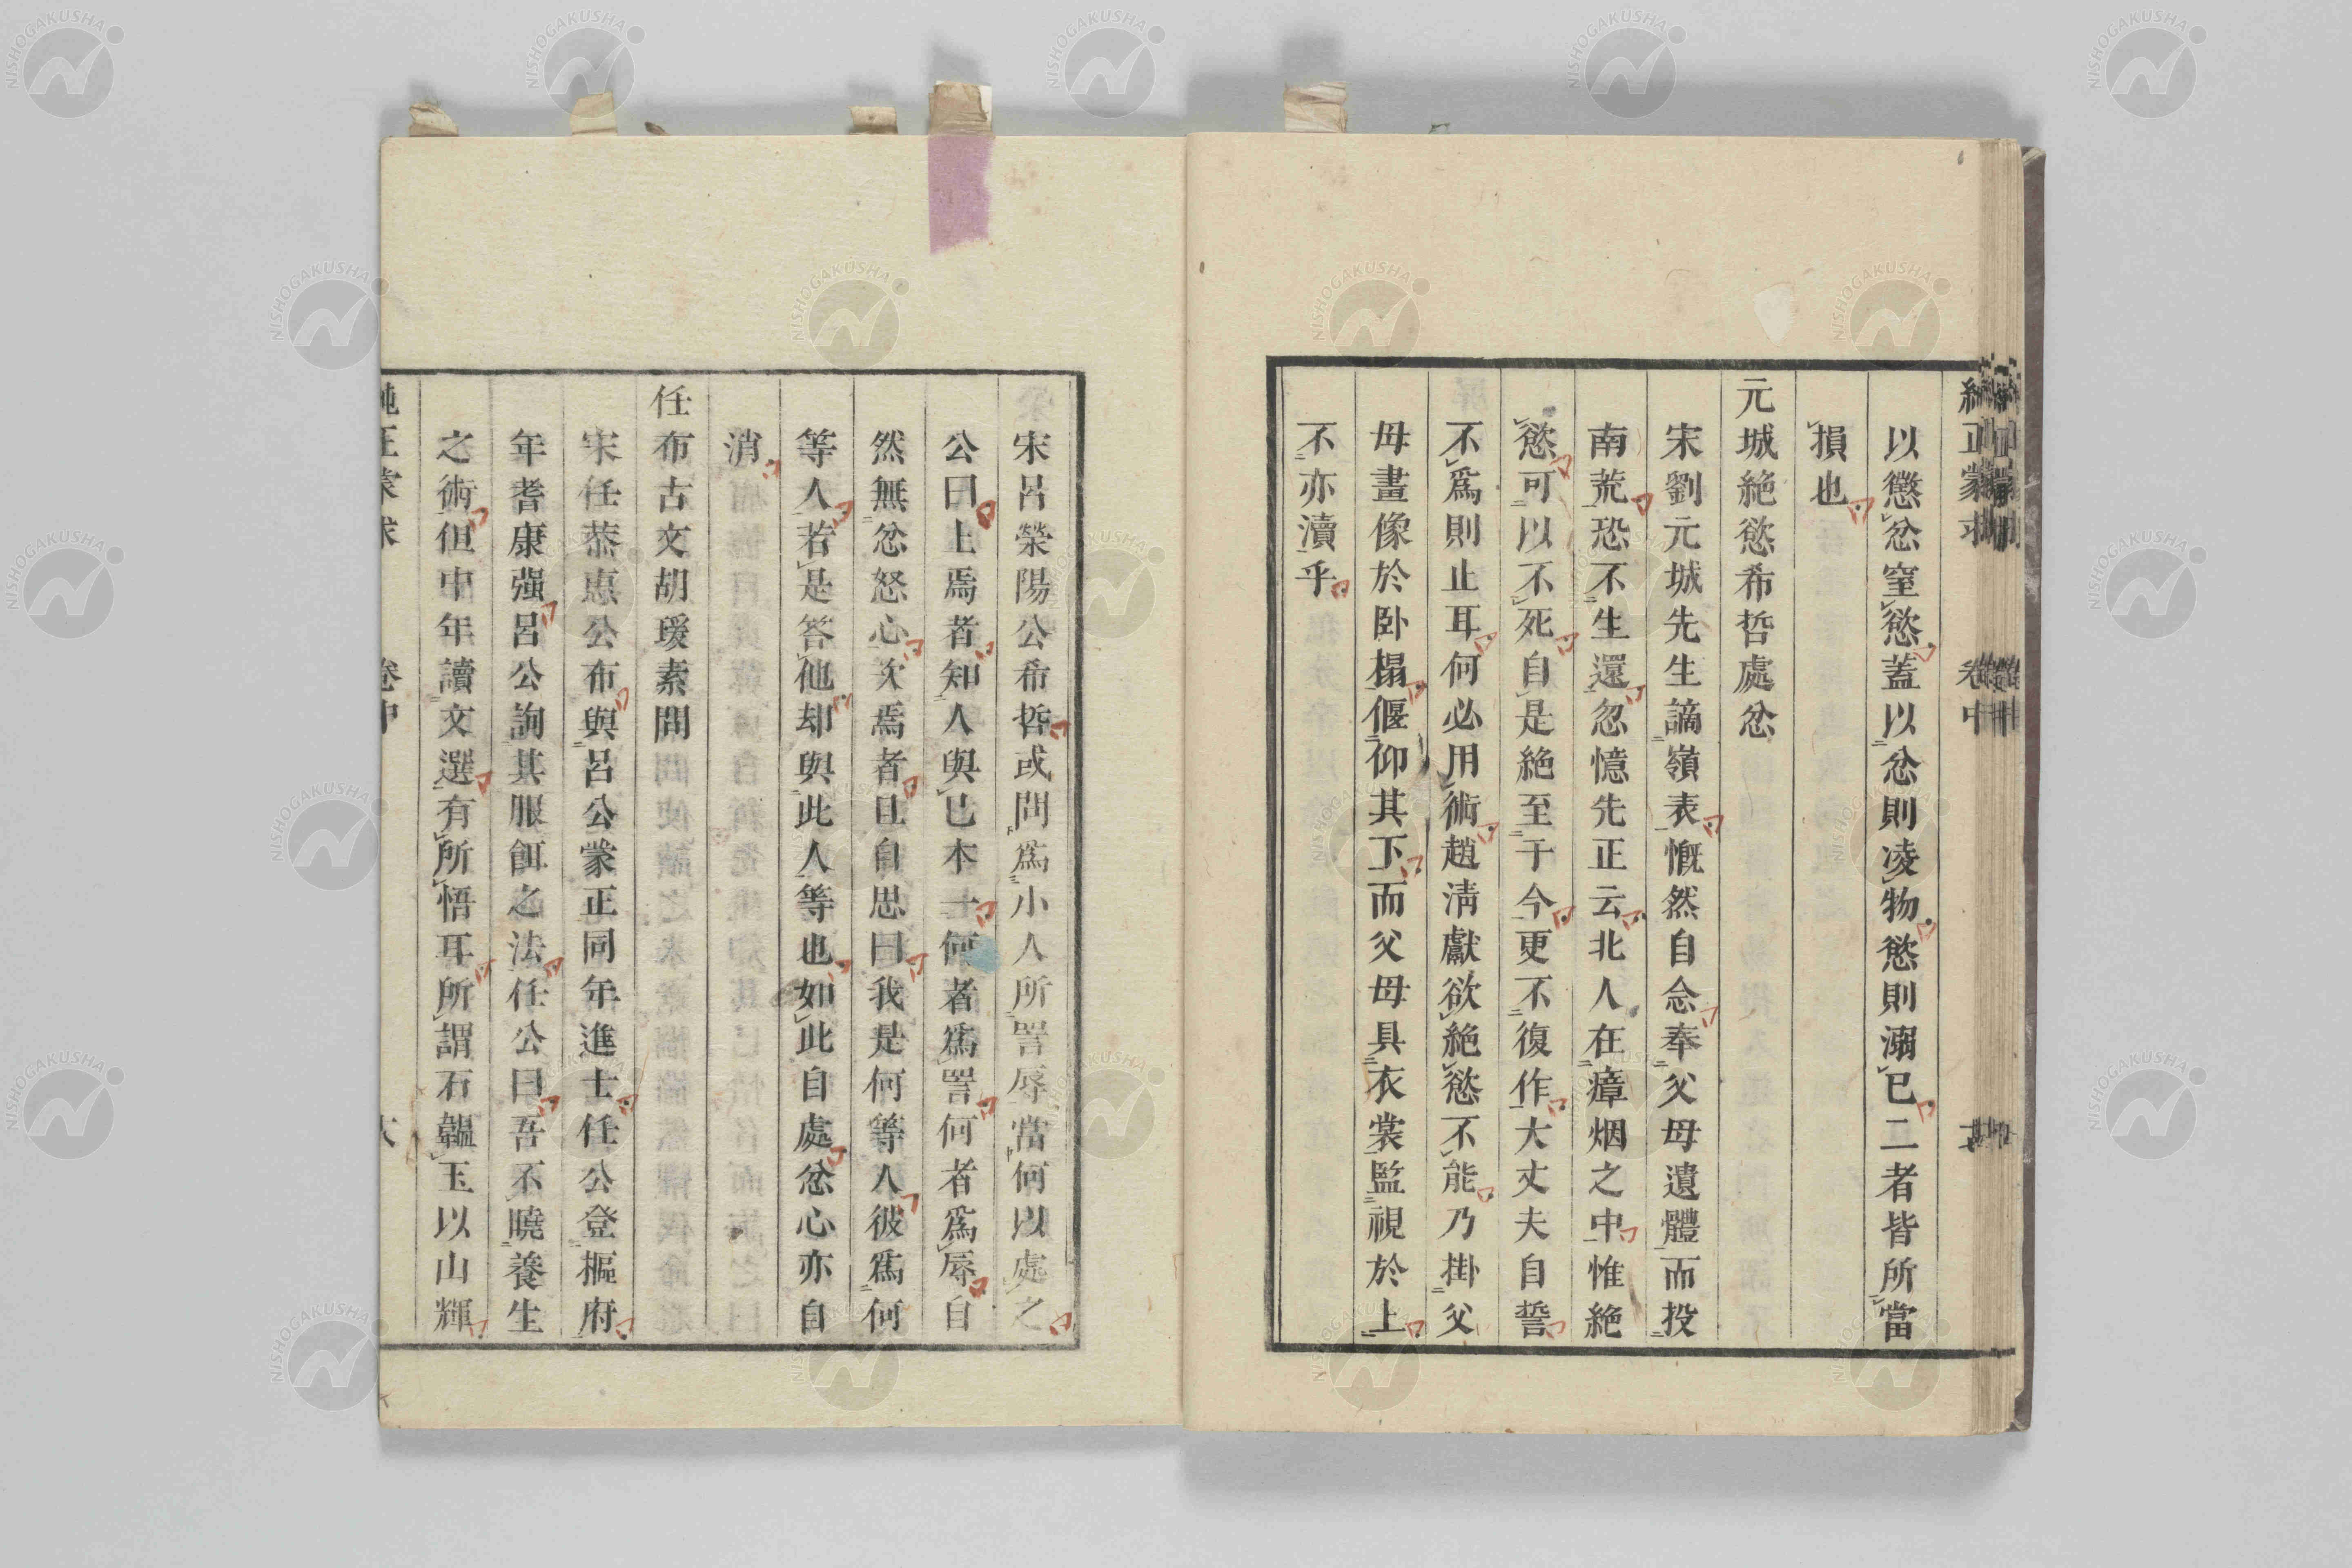 以懲忿窒慾蓋以忿則凌物慾則溺已二者皆所當
損也
元城絶慾希哲處忿
宋劉元城先生謫嶺表慨然自念奉父母遺體而投
南荒恐不生還忽憶先正云北人在瘴烟之中惟絶
慾可以不死自是絶至于今更不復作大丈夫自誓
不爲則止耳何必用術趙淸獻欲絶慾不能乃掛父
母畫像於卧榻偃仰其下而父母具衣裳監視於上
不亦瀆乎
宋呂滎陽公希哲或問爲小人所詈辱當何以處之
公曰上焉者知人與已本一何者爲詈何者爲辱自
然無忿怒心次焉者且自思曰我是何等人彼爲何
等人若是答他却與此人等也如此自處忿心亦自
消
任布古文胡瑗素問
宋任恭惠公布與呂公蒙正同年進士任公登樞府
年耆康强呂公詢其服餌之法任公曰吾不曉養生
之術但中年讀文選有所悟耳所謂石韞玉以山輝
NISHOGAKUSHA